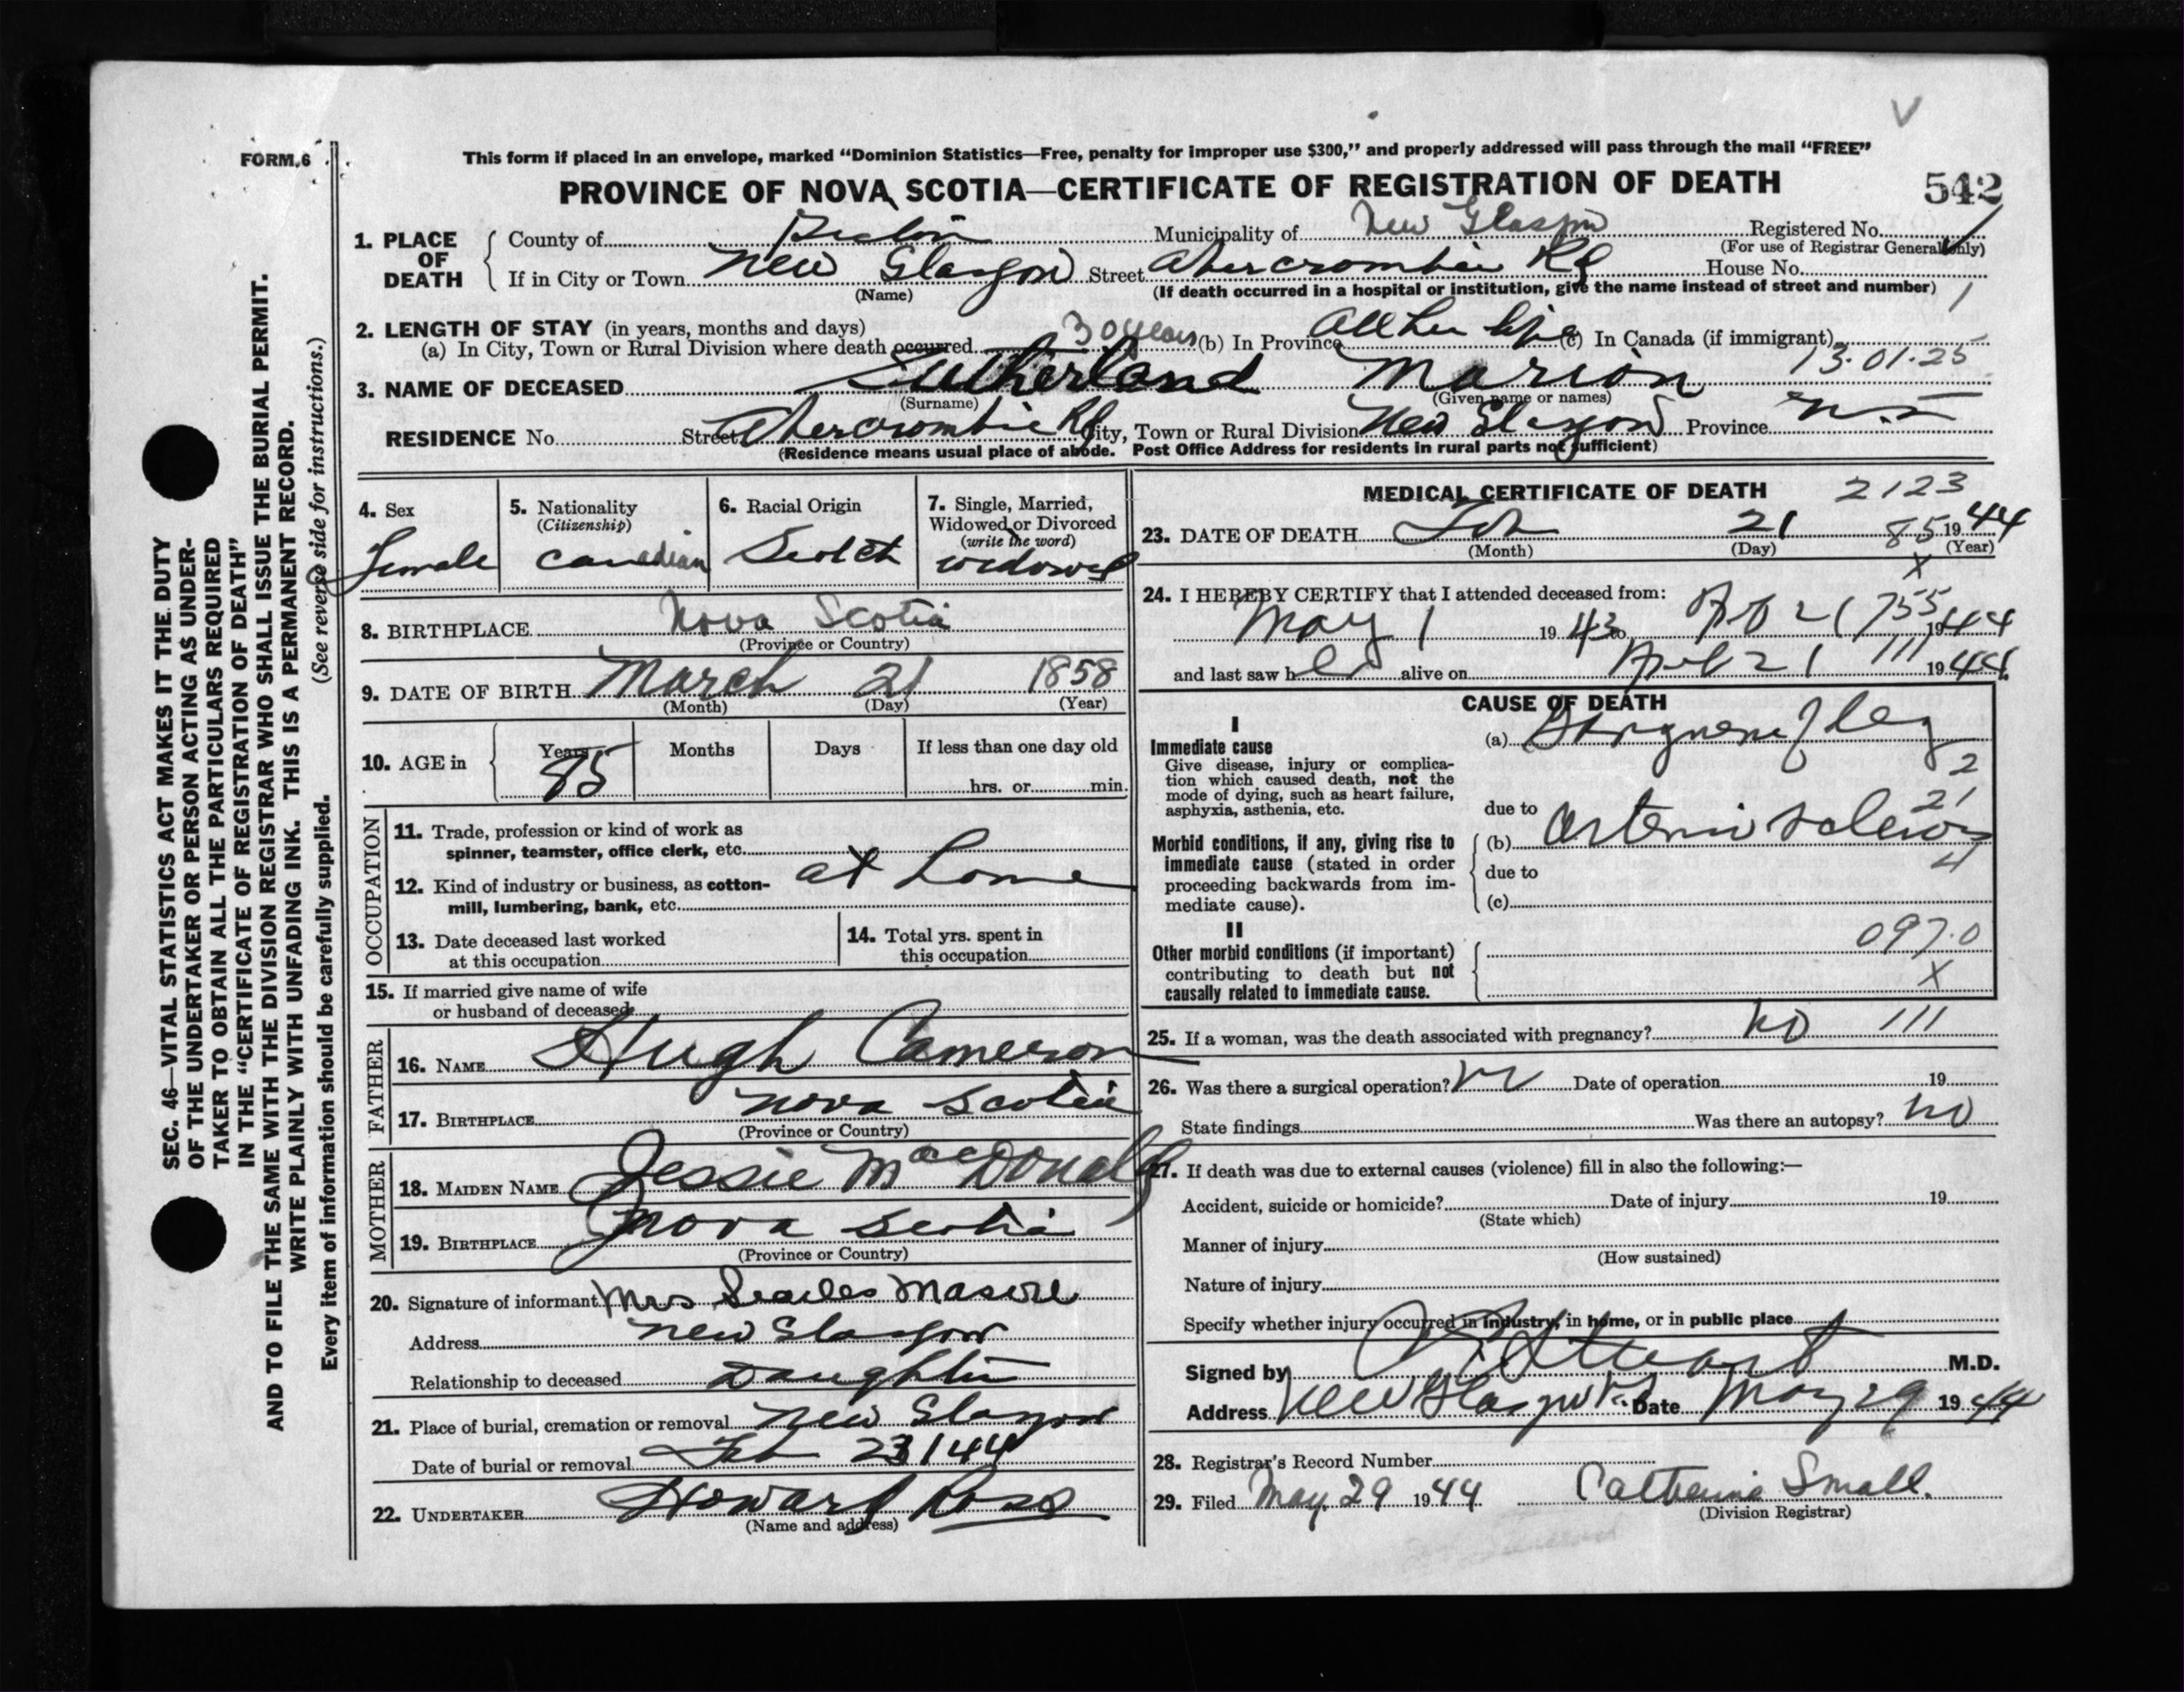 FORM 6
This form if placed in an envelope, marked “Dominion Statistics—Free, penalty for improper use $300,” and properly addressed will pass through the mail “FREE”
PROVINCE OF NOVA SCOTIA—CERTIFICATE OF REGISTRATION OF DEATH
542
1. PLACE OF DEATH
County of Pictou Municipality of New Glasgow Registered No.
(For use of Registrar General only)
If in City or Town New Glasgow Street Abercrombie Rd House No.
(Name) (If death occurred in a hospital or institution, give the name instead of street and number) 1
2. LENGTH OF STAY (in years, months and days)
(a) In City, Town or Rural Division where death occurred 30 years (b) In Province All her life (c) In Canada (if immigrant)
13.01.25
3. NAME OF DECEASED Sutherland Marion
(Surname) (Given name or names)
RESIDENCE No. Street Abercrombie Rd City, Town or Rural Division New Glasgow Province N.S
(Residence means usual place of abode. Post Office Address for residents in rural parts not sufficient)
4. Sex Female
5. Nationality (Citizenship) Canadian
6. Racial Origin Scotch
7. Single, Married, Widowed or Divorced (write the word) widowed
8. BIRTHPLACE Nova Scotia
(Province or Country)
9. DATE OF BIRTH March 21 1858
(Month) (Day) (Year)
10. AGE in Years 85 Months Days If less than one day old
hrs. or min.
OCCUPATION
11. Trade, profession or kind of work as
spinner, teamster, office clerk, etc.
at home
12. Kind of industry or business, as cotton-
mill, lumbering, bank, etc.
13. Date deceased last worked
at this occupation
14. Total yrs. spent in
this occupation
15. If married give name of wife
or husband of deceased
FATHER
16. NAME Hugh Cameron
17. BIRTHPLACE Nova Scotia
(Province or Country)
MOTHER
18. MAIDEN NAME Jessie MacDonald
19. BIRTHPLACE Nova Scotia
(Province or Country)
20. Signature of informant Mrs
Address New Glasgow
Relationship to deceased Daughter
21. Place of burial, cremation or removal New Glasgow
Date of burial or removal Feb 23 / 44
22. UNDERTAKER Howard Ross
(Name and address)
MEDICAL CERTIFICATE OF DEATH 2123
23. DATE OF DEATH Feb 21 85 1944
(Month) (Day) (Year)
X
24. I HEREBY CERTIFY that I attended deceased from:
May 1 1943 to Feb 21 755 1944
and last saw her alive on Feb 21 111 1944
CAUSE OF DEATH
I
Immediate cause
Give disease, injury or complica-
tion which caused death, not the
mode of dying, such as heart failure,
asphyxia, asthenia, etc.
(a) Gangrene of leg
2
due to
21
Morbid conditions, if any, giving rise to
immediate cause (stated in order
proceeding backwards from im-
mediate cause).
(b) Arterio sclerosis
4
due to
(c)
II
Other morbid conditions (if important)
contributing to death but not
causally related to immediate cause.
097.0
X
25. If a woman, was the death associated with pregnancy? no 111
26. Was there a surgical operation? no Date of operation 19
State findings Was there an autopsy? no
27. If death was due to external causes (violence) fill in also the following:—
Accident, suicide or homicide? Date of injury 19
(State which)
Manner of injury
(How sustained)
Nature of injury
Specify whether injury occurred in industry, in home, or in public place
Signed by M.D.
Address New Glasgow N.S. Date May 29 1944
28. Registrar's Record Number
29. Filed May 29 1944 Catherine Small.
(Division Registrar)
SEC. 46—VITAL STATISTICS ACT MAKES IT THE DUTY
OF THE UNDERTAKER OR PERSON ACTING AS UNDER-
TAKER TO OBTAIN ALL THE PARTICULARS REQUIRED
IN THE “CERTIFICATE OF REGISTRATION OF DEATH”
AND TO FILE THE SAME WITH THE DIVISION REGISTRAR WHO SHALL ISSUE THE BURIAL PERMIT.
WRITE PLAINLY WITH UNFADING INK. THIS IS A PERMANENT RECORD.
(See reverse side for instructions.)
Every item of information should be carefully supplied.